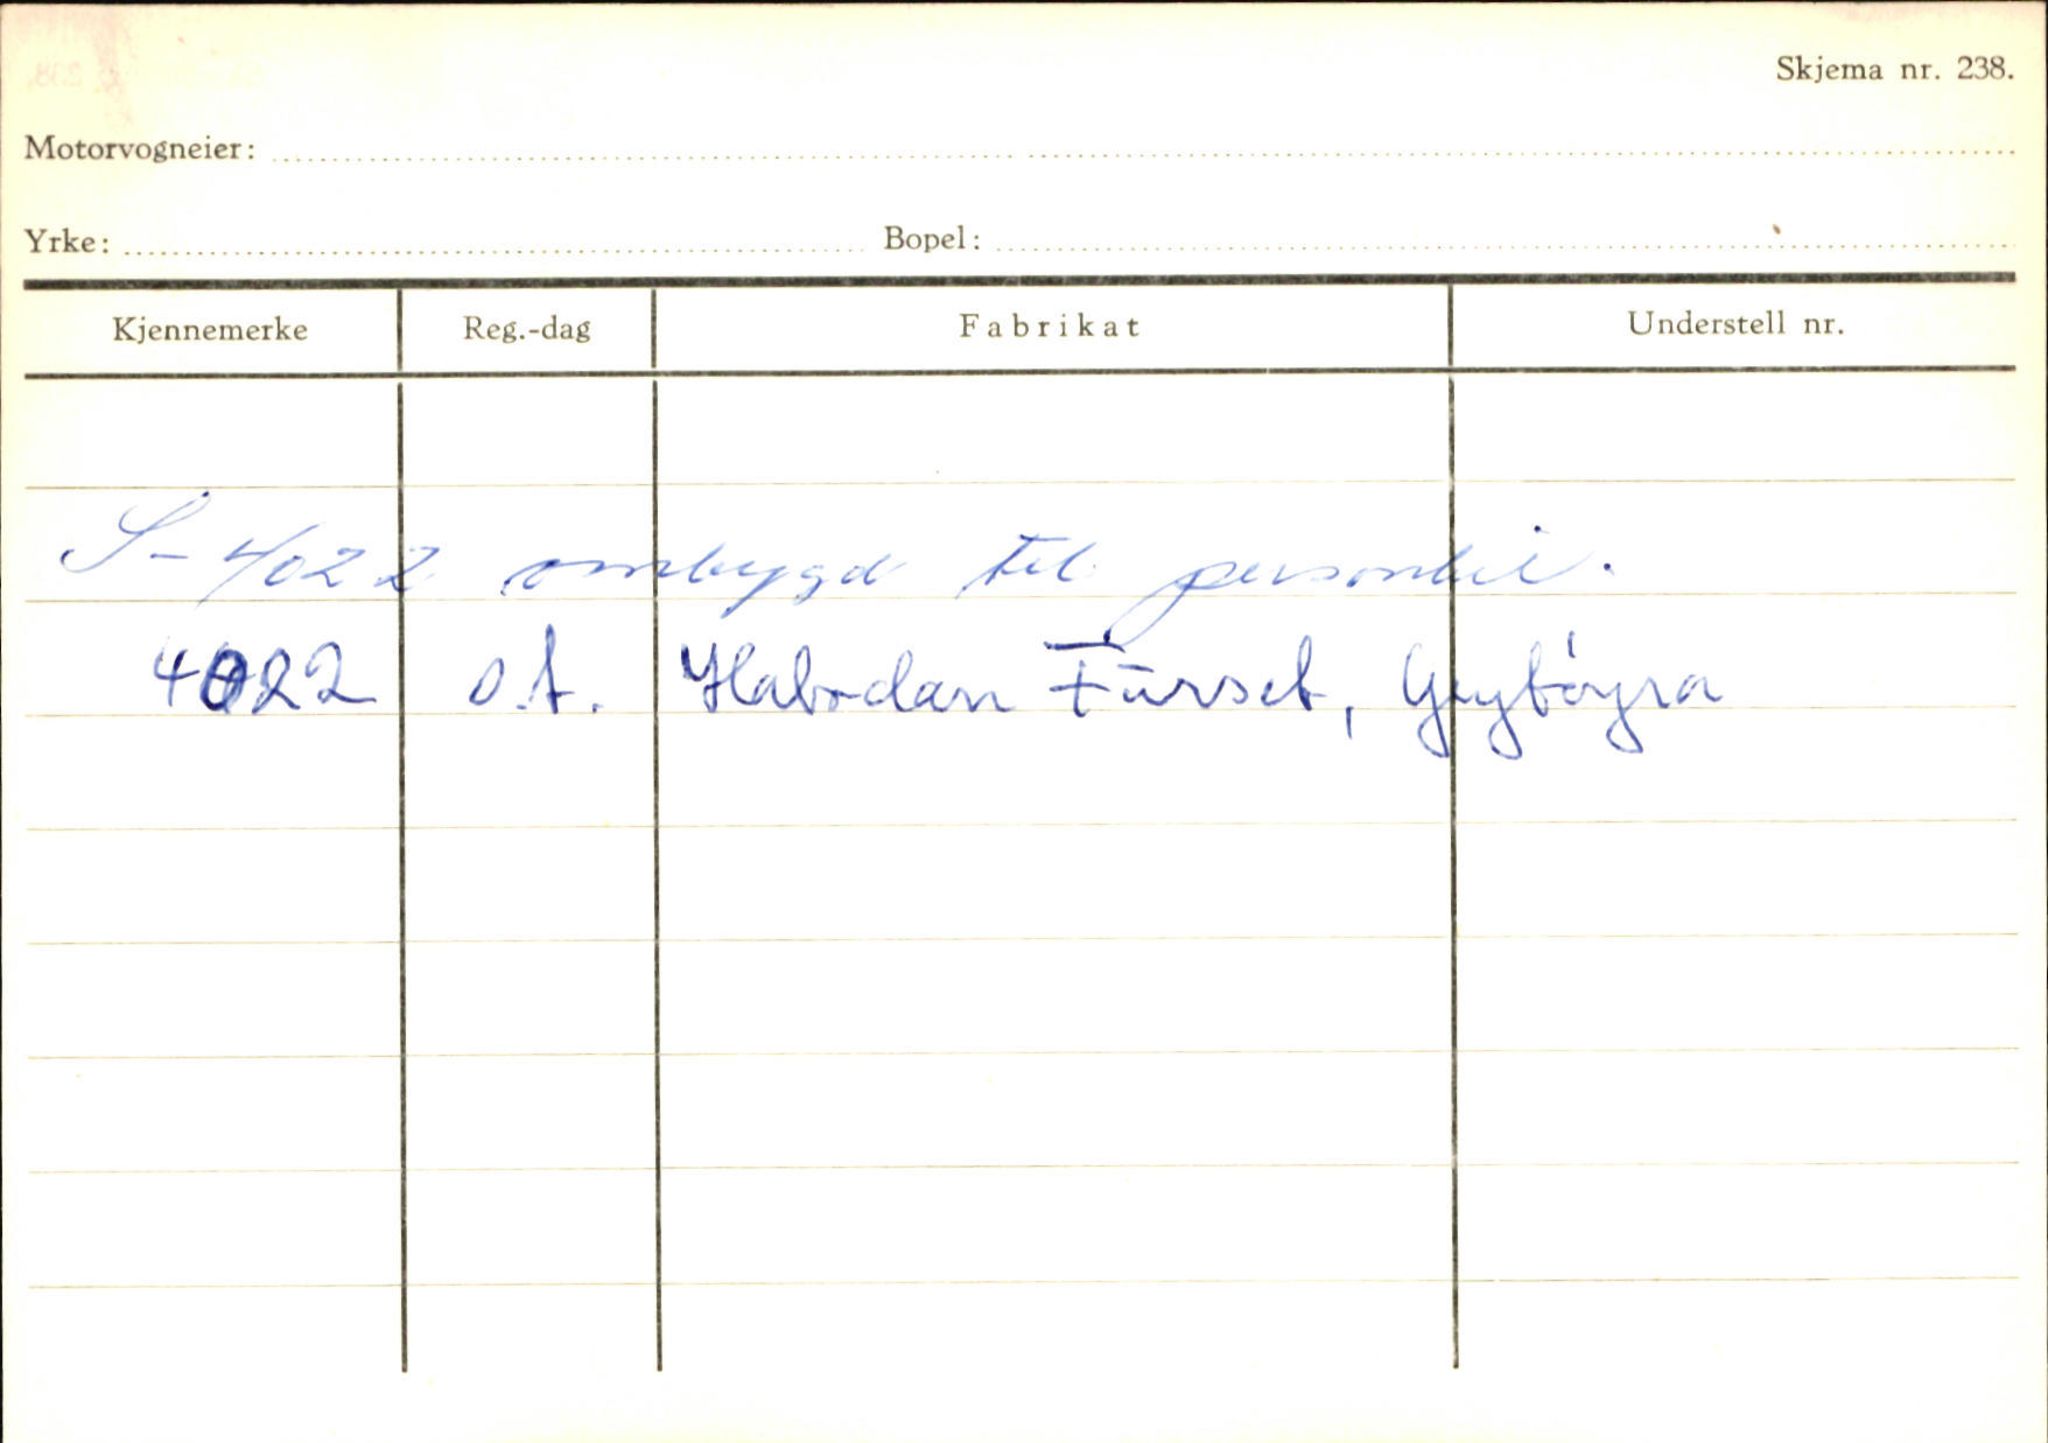 Skjema nr. 238.
Motorvogneier:
Yrke: Bopel:
Kjennemerke Reg.-dag Fabrikat Understell nr.
S-4022 ombygd til personbil.
4022 o.t. Furset,